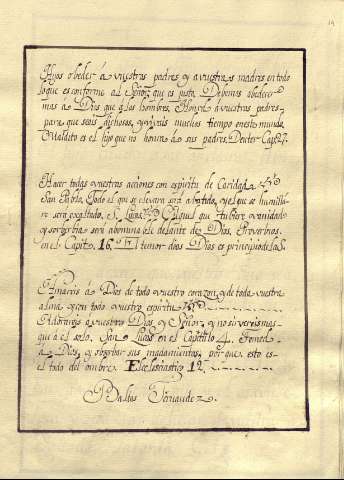 19
Hijos obedeced á vuestros padres, y a vuestras madres en todo
lo que es conforme al Señor; que es justa. Debemos obedecer
mas a Dios, que a los hombres. Honrad a vuestros padres,
para que seais dichosos, y viváis mucho tiempo en este mundo.
Maldito es el hijo que no honra á sus padres. Deuter Cap. 27.
Haced todas vuestras acciones con espiritu de Caridad.
San Pablo. Todo el que se elevara será abatido, y el que se humilla-
ra será exaltado. S. Lucas. Aquel que tubiere vanidad
y soberbia será abominable delante de Dios. Proverbios.
en el Capit. 16. El temor Dios es principio de la S.
Amaréis á Dios de todo vuestro corazon, y de toda vuestra
alma, y con todo vuestro espiritu
Adoraréis a vuestro Dios, y Señor, y no serviréis mas
que á él solo. San Lucas en el Capitulo 4. Temed
a Dios, y observar sus madamientos, por que esto es
el todo del ombre. Ecclesiastico 12.
Baltas Fernandez.